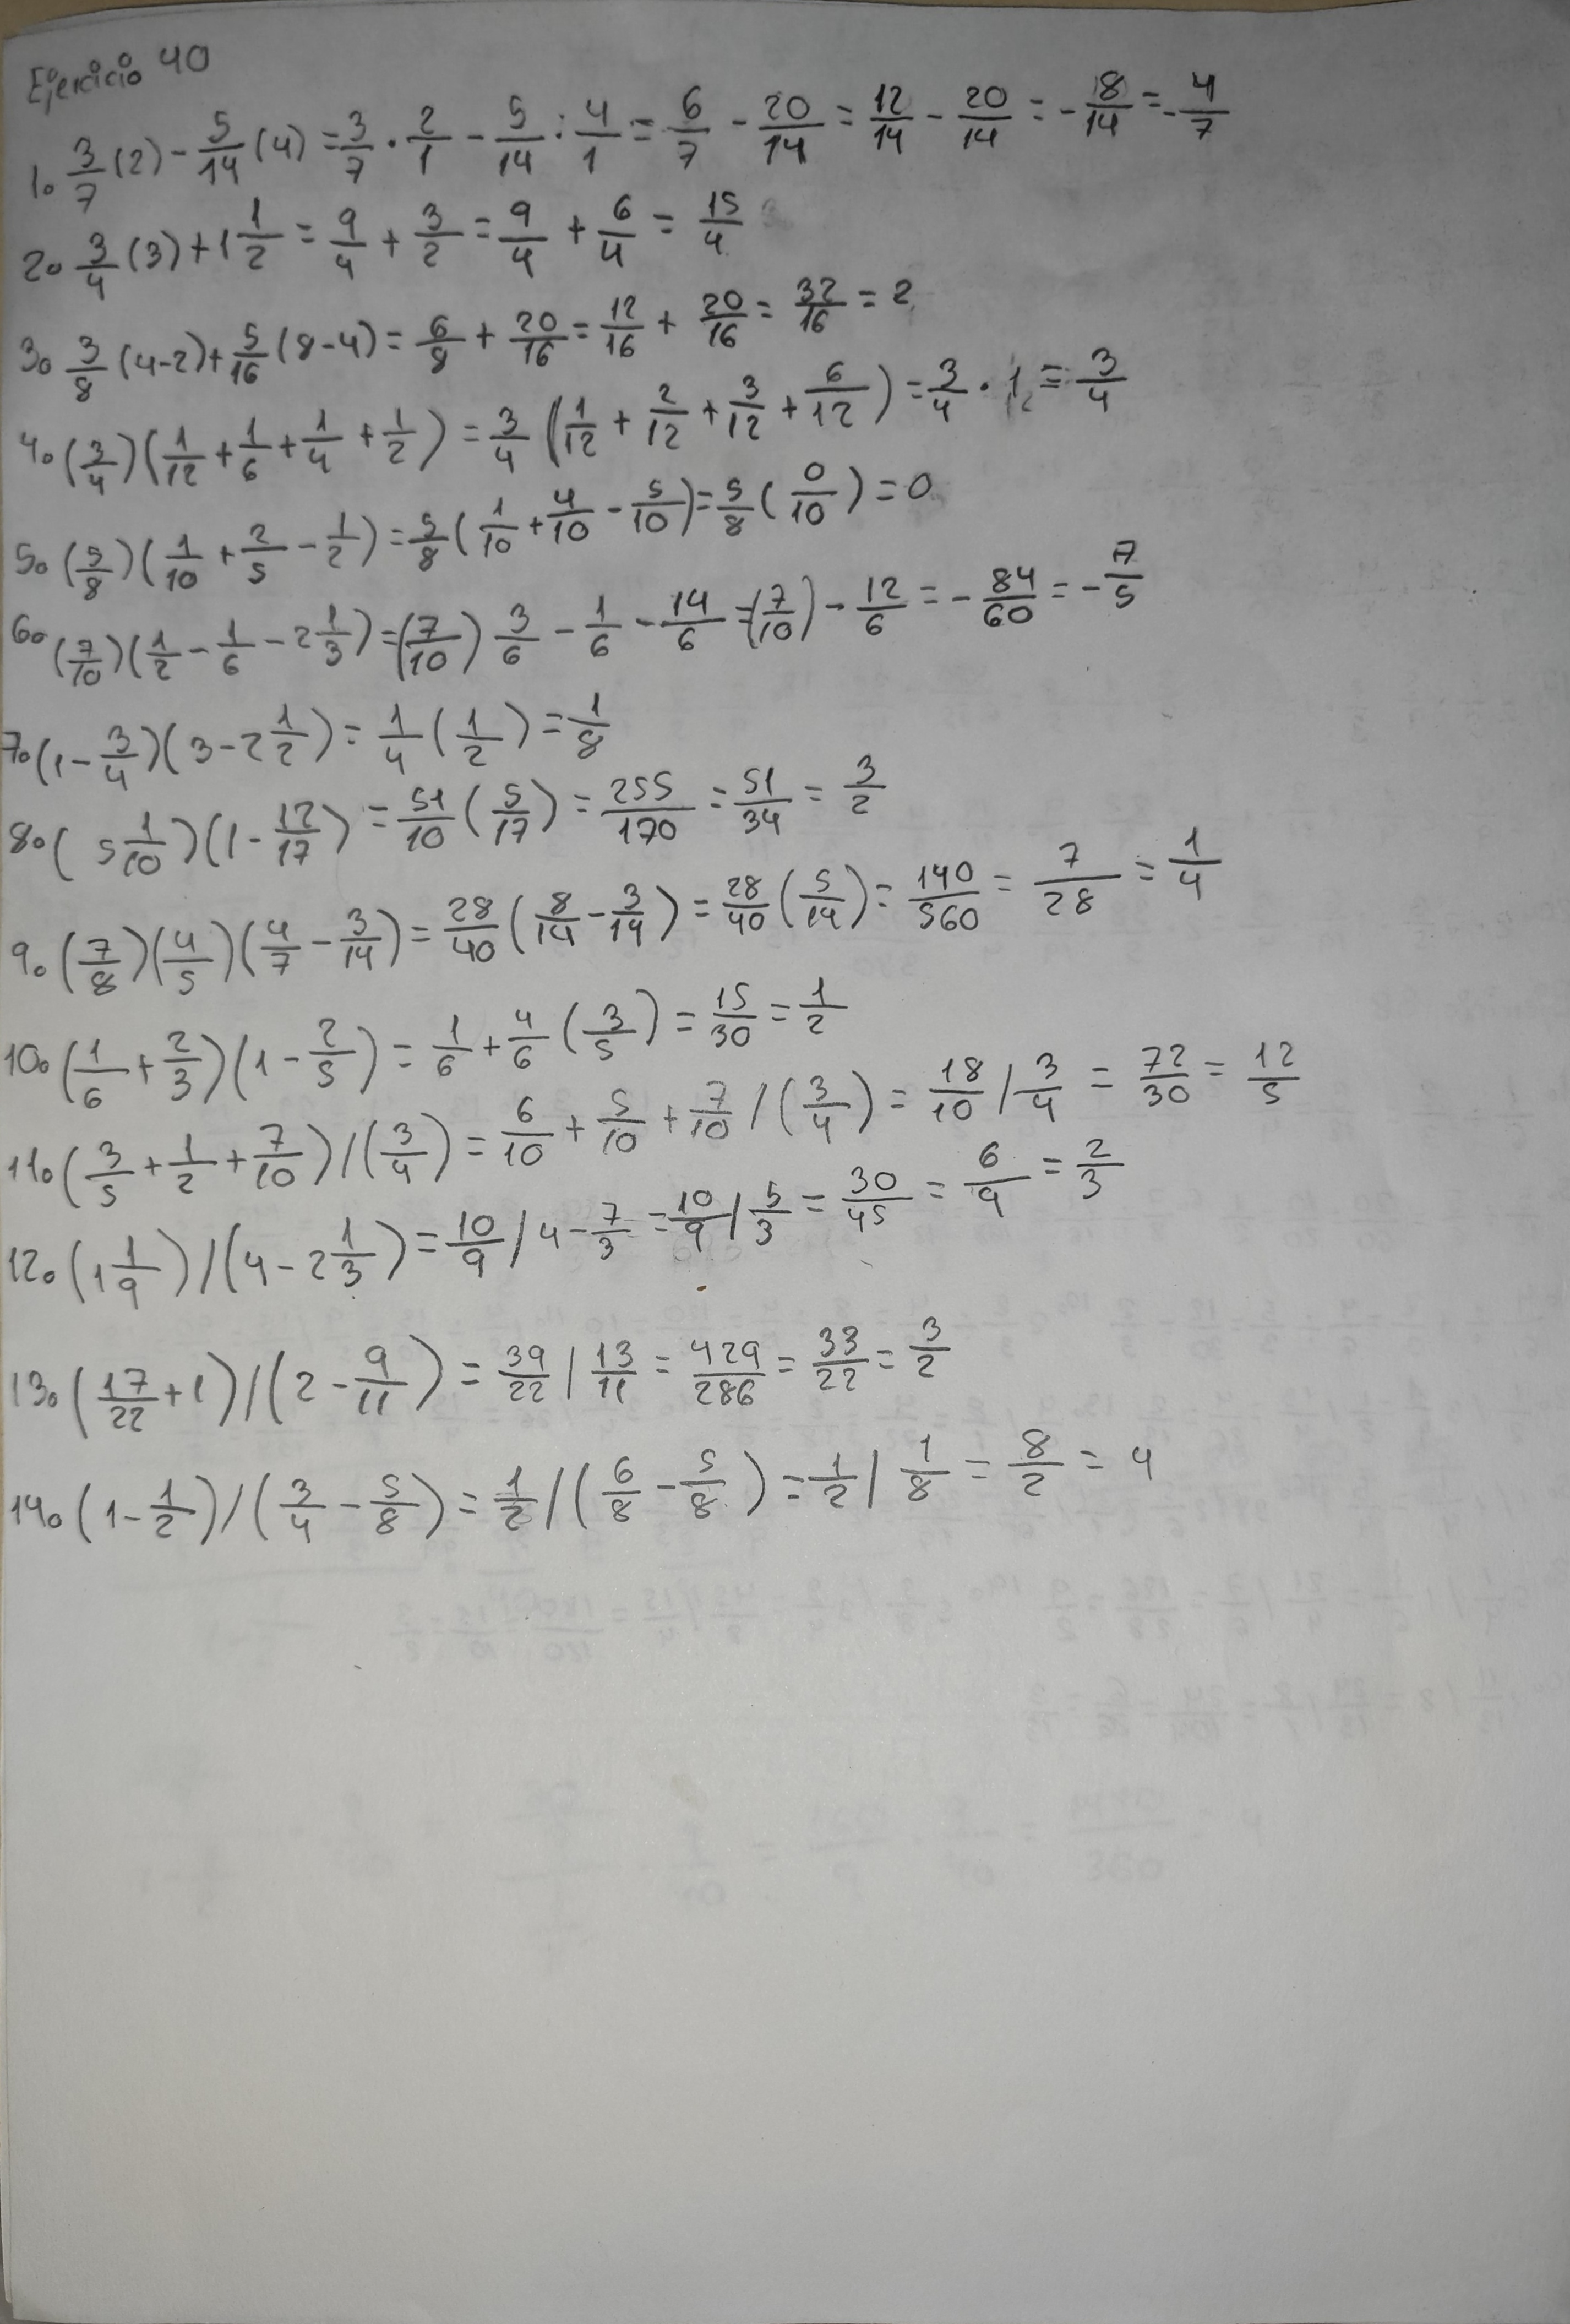 Ejercicio 40
1. 3/7 (2) - 5/14 (4) = 3/7 · 2/1 - 5/14 : 4/1 = 6/7 - 20/14 = 12/14 - 20/14 = - 8/14 = - 4/7
2. 3/4 (3) + 1 1/2 = 9/4 + 3/2 = 9/4 + 6/4 = 15/4
3. 3/8 (4-2) + 5/16 (8-4) = 6/8 + 20/16 = 12/16 + 20/16 = 32/16 = 2
4. (3/4)(1/12 + 1/6 + 1/4 + 1/2) = 3/4 (1/12 + 2/12 + 3/12 + 6/12) = 3/4 · 1 = 3/4
5. (5/8)(1/10 + 2/5 - 1/2) = 5/8 (1/10 + 4/10 - 5/10) = 5/8 (0/10) = 0
6. (7/10)(1/2 - 1/6 - 2 1/3) = (7/10) 3/6 - 1/6 - 14/6 = (7/10) - 12/6 = - 84/60 = - 7/5
7. (1 - 3/4)(3 - 2 1/2) = 1/4 (1/2) = 1/8
8. (5 1/10)(1 - 12/17) = 51/10 (5/17) = 255/170 = 51/34 = 3/2
9. (7/8)(4/5)(4/7 - 3/14) = 28/40 (8/14 - 3/14) = 28/40 (5/14) = 140/560 = 7/28 = 1/4
10. (1/6 + 2/3)(1 - 2/5) = 1/6 + 4/6 (3/5) = 15/30 = 1/2
11. (3/5 + 1/2 + 7/10) / (3/4) = 6/10 + 5/10 + 7/10 / (3/4) = 18/10 / 3/4 = 72/30 = 12/5
12. (1 1/9) / (4 - 2 1/3) = 10/9 / 4 - 7/3 = 10/9 / 5/3 = 30/45 = 6/9 = 2/3
13. (17/22 + 1) / (2 - 9/11) = 39/22 / 13/11 = 429/286 = 33/22 = 3/2
14. (1 - 1/2) / (3/4 - 5/8) = 1/2 / (6/8 - 5/8) = 1/2 / 1/8 = 8/2 = 4